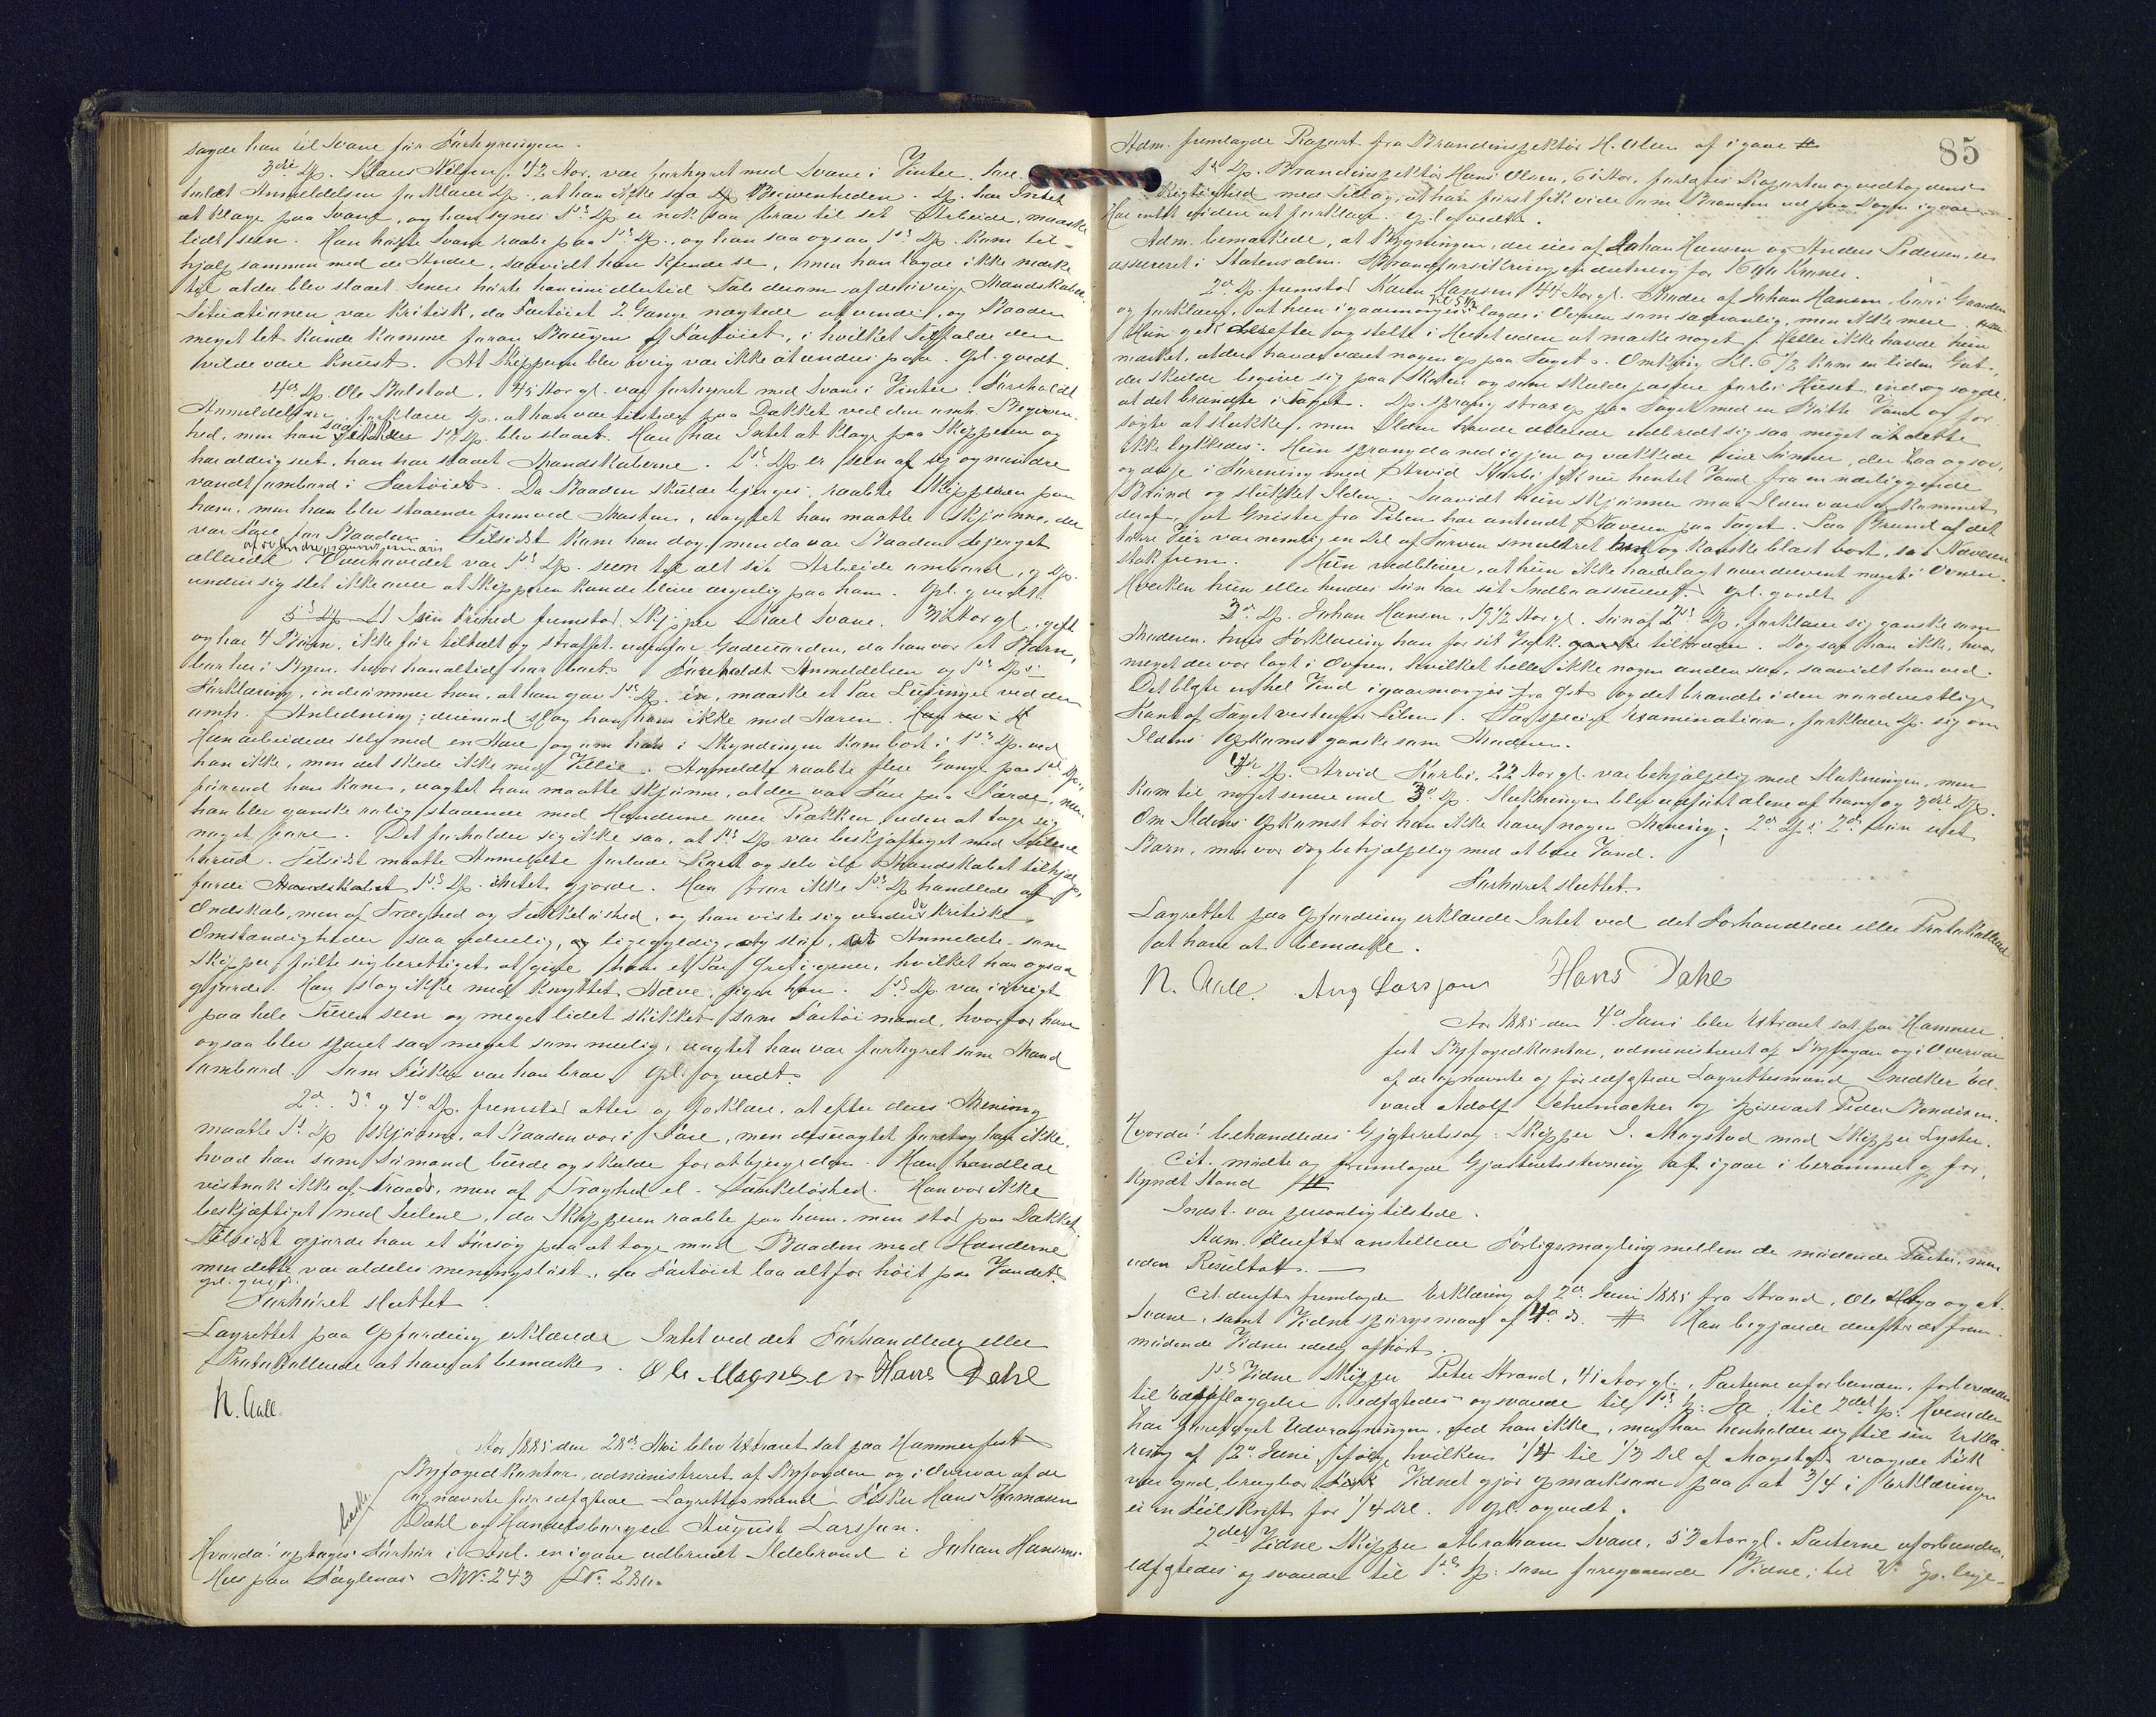 sagde han til Svane før Forhyringen.
3die Dp. Klaus Nilsen, 42 Aar, var forhyret med Svane i Vinter. Fore-
holdt Anmeldelsen forklarer Dp. at han ikke saa Begivenheden. Dp. har Intet
at klage paa Svane, og han synes 1ste Dp. er nok saa brav til sit Arbeide, maaske
lidt seen. Han hørte Svane raabe paa 1ste Dp., og han saa ogsaa 1ste Dp. kom til-
hjælp sammen med de Andre, saavidt han kjendte se, men han lagde ikke mærke
til at der blev slaaet. Senere hørte han imidlertid Tale derom af de øvrige Mandskaber.
Situationen var kritisk, da Fartøiet 2 Gange nægtede at vende, og Baaden
meget let kunde komme foran Bougen af Fartøiet, i hvilket Tilfælde den
vilde være knust. At Skipperen blev ivrig var ikke at undres paa. Opl. og vedt.
4de Dp. Ole Balstad, 45 Aar gl. var forhyret med Svane i Vinter. Foreholdt
Anmeldelsen forklarer Dp., at han var tilstede paa Dækket ved den omh. Begiven-
hed, men han saa ikke 1ste Dp. blev slaaet. Han har Intet at klage paa Skipperen og
har aldrig seet, han har slaaet Mandskaberne. 1ste Dp. er seen af sig og mindre
vandt ombord i Fartøiet. Da Baaden skulde bjerges, raabte Skipperen paa
ham, men han blev staaende fremved Masten, uagtet han maatte skjønne, der
var Fare for Baaden. Tilsidst kom han dog, men da var Baaden bjerget
allerede af de andre. Overhovedet var 1ste Dp. seen til alt sit Arbeide ombord, og Dp.
undrer sig slet ikke over at Skipperen kunde blive ærgerlig paa ham. Opl. og vedt.
5te Dp. I sin Frihed fremstod Skipper Karl Svane. 31 Aar gl., gift
og har 4 Børn, ikke før tiltalt og straffet udenfor Gadeuorden, da han var et Barn,
bor her i Byen, hvor han altid har boet. Foreholdt Anmeldelsen og 1ste Dp.s
Forklaring, indrømmer han, at han gav 1ste Dp. en, maaske et Par Lusinger ved den
omh. Anledning; derimod slog han ham ikke med Aaren.
Han arbeidede selv med en Aare og om han i Skyndingen kom bort i 1ste Dp. ved
han ikke, men det skede ikke med Villie. Anmeldte raabte flere Gange paa 1ste Dp.,
førend han kom, uagtet han maatte skjønne, at der var Fare paa Færde, men
han blev ganske rolig staaende med Hænderne over Rækken, uden at tage sig
noget fore. Det forholder sig ikke saa, at 1ste Dp. var beskjæftiget med Seilene
forud. Tilsidst maatte Anmeldte forlade Roret og selv ile Mandskabet tilhjælp,
fordi Mandskabet 1ste Dp. intet gjorde. Han tror ikke 1ste Dp. handlede af
Ondskab, men af Træghed og Tankeløshed, og han viste sig under de kritiske
Omstændigheder saa uduelig, og ligegyldig og sløv, at Anmeldte som
Skipper følte sig berettiget at give ham et Par Ørefigener, hvilket han ogsaa
gjorde. Han slog ikke med knyttet Næve, siger han. 1ste Dp. var iøvrigt
paa hele Turen seen og meget lidet skikket som Fartøimand, hvorfor han
ogsaa blev sparet saa meget som mulig, uagtet han var forhyret som Mand
ombord. Som Fisker var han brav. Opl. og vedt.
2den, 3die og 4de Dp. fremstod atter og forklarer, at efter deres Mening
maatte 1ste Dp. skjønne, at Baaden var i Fare, men desuagtet foretog han ikke,
hvad han som Sømand burde og skulde for at bjerge den. Han handlede
vistnok ikke af Traads, men af Træghed el. Tankeløshed. Han var ikke
beskjæftiget med Seilene, da Skipperen raabte paa ham, men stod paa Dækket.
Tilsidst gjorde han et Forsøg paa at tage mod Baaden med Hænderne
men dette var aldeles meningsløst, da Fartøiet laa altfor høit paa Vandet.
Opl. og vedt.
Forhøret sluttet.
Lagrettet paa Opfordring erklærede Intet ved det Forhandlede eller
Protokollerede at have at bemærke.
Ole Magnsen Hans Dahl
N. Aall.
Aar 1885 den 28de Mai blev Extraret sat paa Hammerfest
Byfogedkontor, administreret af Byfogden og i Overvær af de
opnævnte før edfæstede Lagrettesmænd: Fisker Hans Thomasen
Dahl og Handelsborger August Larsson.
Hvorda! optages Forhør i Anl. en igaar udbrudt Ildebrand i Johan Hansens
Hus paa Fuglenes MN: 243 LN: 280a.
85
Adm. fremlagde Rapport fra Brandinspektør H. Olsen af igaar #
1ste Dp. Brandinspektør Hans Olsen, 61 Aar, forelagdes Rapporten og vedtog dens
Rigtighed med Tillæg, at han først fik vide om Branden ud paa Dagen igaar.
Har intet videre at forklare. Opl. og vedt.
Adm. bemærkede, at Bygningen, der eies af Johan Hansen og Anders Pedersen, er
assureret i Statens alm. Brandforsikringsindretning for 1600 Kroner.
2den Dp. fremstod Karen Hansen 44 Aar gl. Moder af Johan Hansen, bor i Gaarden
og forklarer, at hun igaarmorges Kl. 5 1/2 lagde i Ovnen som sædvanlig, men ikke mere.
Hun gik derefter og stelte i Huset uden at mærke noget. Heller ikke havde hun
mærket, at der havde været nogen op paa Taget. Omkring Kl. 6 1/2 kom en liden Gut,
der skulde begive sig paa Skolen og som skulde passere forbi Huset ind og sagde,
at det brændte i Taget. Dp. sprang strax op paa Taget med en Bøtte Vand og for-
søgte at slukke, men Ilden havde allerede udbredt sig saa meget at dette
ikke lykkedes. Hun sprang da ned igjen og vækkede sine Sønner, der laa og sov,
og disse i Forening med Arvid Korbi fik nu hentet Vand fra en nærliggende
Brønd og slukket Ilden. Saavidt hun skjønner maa Ilden være opkommet
deraf, at Gnister fra Piben har antændt Næveren paa Taget. Paa Grund af det
tørre Veir var nemlig en Del af Torven smuldret og kanske blæst bort, saa Næveren
stak frem. Hun vedbliver, at hun ikke havde lagt overdrevent meget i Ovnen.
Hverken hun eller hendes Søn har sit Indbo assureret. Opl. og vedt.
3die Dp. Johan Hansen, 19 1/2 Aar gl. Søn af 2den Dp., forklarer sig ganske som
Moderen, hvis Forklaring han for sit Vedk. tiltræder. Dog saa han ikke, hvor
meget der var lagt i Ovnen, hvilket heller ikke nogen anden saa, saavidt han ved.
Det blæste en hel Vind igaarmorges fra Øst og det brændte i den nordøstlige
Kant af Taget vestenfor Piben. Paa speciel Examination, forklarer Dp. sig om
Ildens Opkomst ganske som Moderen.
4de Dp. Arvid Korbi, 22 Aar gl. var behjælpelig med Slukningen, men
kom til noget senere end 3die Dp. Slukningen blev udført alene af ham og 3die Dp.
Om Ildens Opkomst tør han ikke have nogen Mening; 2den Dp.s 2den Søn er et
Barn, men var dog behjælpelig med at bære Vand.
Forhøret sluttet.
Lagrettet paa Opfordring erklærede Intet ved det Forhandlede eller Protokollerede
at have at bemærke.
N. Aall. Aug Larsson Hans Dahl
Aar 1885 den 4de Juni blev Extraret sat paa Hammer-
fest Byfogedkontor, administreret af Byfogden og i Overvær
af de opnævnte og før edfæstede Lagrettesmænd Snedker Ed-
vard Adolf Schumacher og Spisevært Peder Bendixen.
Hvorda! behandledes Gjæsteretssag: Skipper J. Mogstad mod Skipper Lyster.
Cit. mødte og fremlagde Gjæsteretsstevning af igaar i berammet og for-
kyndt Stand #
Indst. var personlig tilstede.
Adm. derefter anstillede Forligsmægling mellem de mødende Parter, men
uden Resultat. —
Cit. derefter fremlagde Erklæring af 2den Juni 1885 fra Strand, Ole Haga og A.
Svane, samt Vidnespørgsmaal af 4de ds. # Han begjærede derefter de frem-
mødende Vidner edelig afhørt.
1ste Vidne Skipper Peter Strand, 41 Aar gl., Parterne uforbunden, forberedtes
til Edsaflæggelse, edfæstedes og svarede til 1ste Sp: Ja; til 2det Sp: Hvem der
har foretaget Udvragningen, ved han ikke, men han henholder sig til sin Erklæ-
ring af 2den Juni, ifølge hvilken 1/4 til 1/3 Del af Mogstads vragede Fisk
var god, brugbar Fisk. Vidnet gjør opmærksom paa, at 3/4 i Erklæringen
er en Feilskrift for 1/4 Del. Opl. og vedt.
2det Vidne Skipper Abraham Svane, 53 Aar gl. Parterne uforbunden,
edfæstedes og svarede til 1ste Sp: som foregaaende Vidne; til